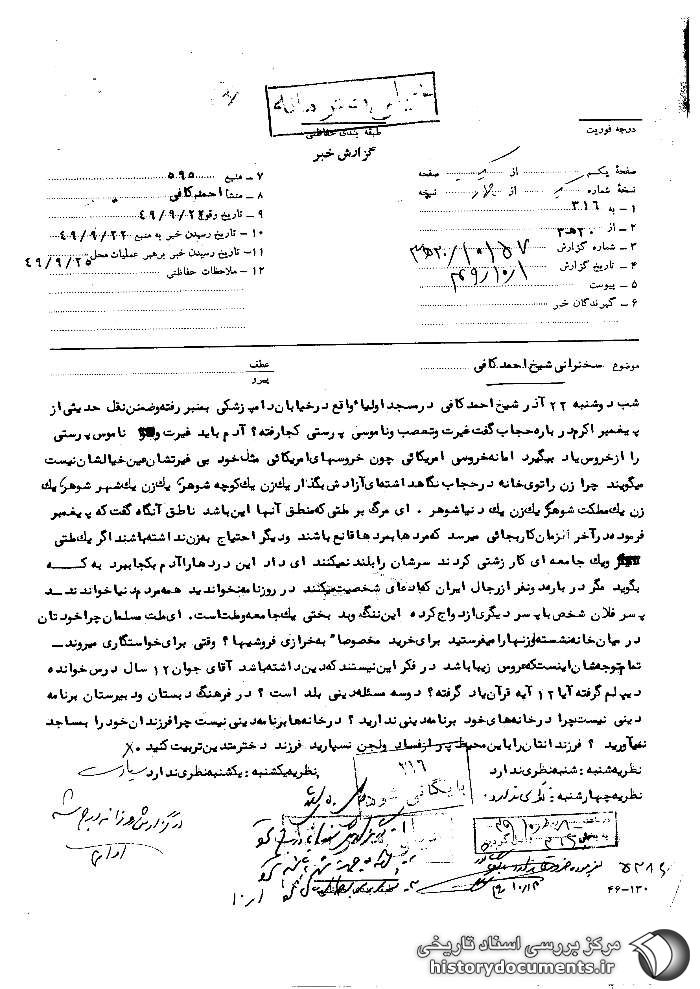 خیلی محرمانه
طبقه بندی حفاظتی
گزارش خبر
درجه فوریت
صفحهٔ یکم از یک صفحه
نسخهٔ شماره از نسخه
۱ – به ۳۱۶
۲ – از ۲۰ ه‍ ۳
۳ – شماره گزارش ۲۰ه‍۳/۱۰۱۵۷
۴ – تاریخ گزارش ۴۹/۱۰/۱
۵ – پیوست
۶ – گیرندگان خبر
۷ – منبع ۵۹۵
۸ – منشأ احمد کافی
۹ – تاریخ وقوع ۴۹/۹/۲۲
۱۰ – تاریخ رسیدن خبر به منبع ۴۹/۹/۲۲
۱۱ – تاریخ رسیدن خبر برهبر عملیات محل ۴۹/۹/۲۵
۱۲ – ملاحظات حفاظتی
موضوع سخنرانی شیخ احمد کافی
عطف
پیرو
شب دوشنبه ۲۲ آذر شیخ احمد کافی درمسجد اولیاء واقع درخیابان دامپزشکی بمنبر رفته وضمن نقل حدیثی از
پیغمبر اکرم درباره حجاب گفت غیرت وتعصب وناموسی پرستی کجا رفته؟ آدم باید غیرت و ناموس پرستی
را ازخروس یاد بیگیرد امانه خروسی امریکائی چون خروسهای امریکائی مثل خود بی غیرتشان عین خیالشان نیست
میگویند چرا زن راتوی خانه درحجاب نگاهداشته‌ای آزادش بگذار یک زن یک کوچه شوهر؟ یک زن یک شهر شوهر؟ یک
زن یک مملکت شوهر؟ یک زن یک دنیا شوهر . ای مرگ بر ملتی که منطق آنها این باشد ناطق آنگاه گفت که پیغمبر
فرموده درآخر الزمان کار بجائی میرسد که مردها بمردها قانع باشند ودیگر احتیاج به زن نداشته باشند اگر یک ملتی
ویک جامعه ای کار زشتی کردند سرشان را بلند نمیکنند ای داد این دردها را آدم بکجا ببرد به کـــه
بگوید مگر در باره دونفر ازرجال ایران که ادعای شخصیت میکنند در روزنامه نخواندید همه مردم دنیا خواندنـــد
پسر فلان شخص با پسر دیگری ازدواج کرده این ننگ وبد بختی یک جامعه وملت است. ای ملت مسلمان چرا خودتان
در میان خانه نشسته و زنها را میفرستید برای خرید مخصوصاً به خرازی فروشیها ؟ وقتی برای خواستگاری میروند –
تمام توجه شان اینست که عروس زیبا باشد در فکر این نیستند که دین داشته باشد آقای جوان ۱۲ سال درس خوانده
دیپلم گرفته آیا ۱۲ آیه قرآن یاد گرفته؟ دو سه مسئله دینی بلد است ؟ در فرهنگ دبستان ودبیرستان برنامه
دینی نیست چرا درخانه های خود برنامه دینی ندارید ؟ درخانه ها برنامه دینی نیست چرا فرزندان خود را بمساجد
نمیآورید ؟ فرزندانتان را باین محیط پر از فساد ولجن نسپارید فرزند دختر متدین تربیت کنید .
نظریه شنبه : شنبه نظری ندارد
نظریه یکشنبه : یکشنبه نظری ندارد
نظریه چهارشنبه : نظری ندارد
۳۱۶
بایگانی شود
در گزارش روزانه درج شد
۴۹/۱۰/۸
۳۱۶
۴۹/۱۰/۱۳
۴۶-۱۳۰
مرکز بررسی اسناد تاریخی
historydocuments.ir